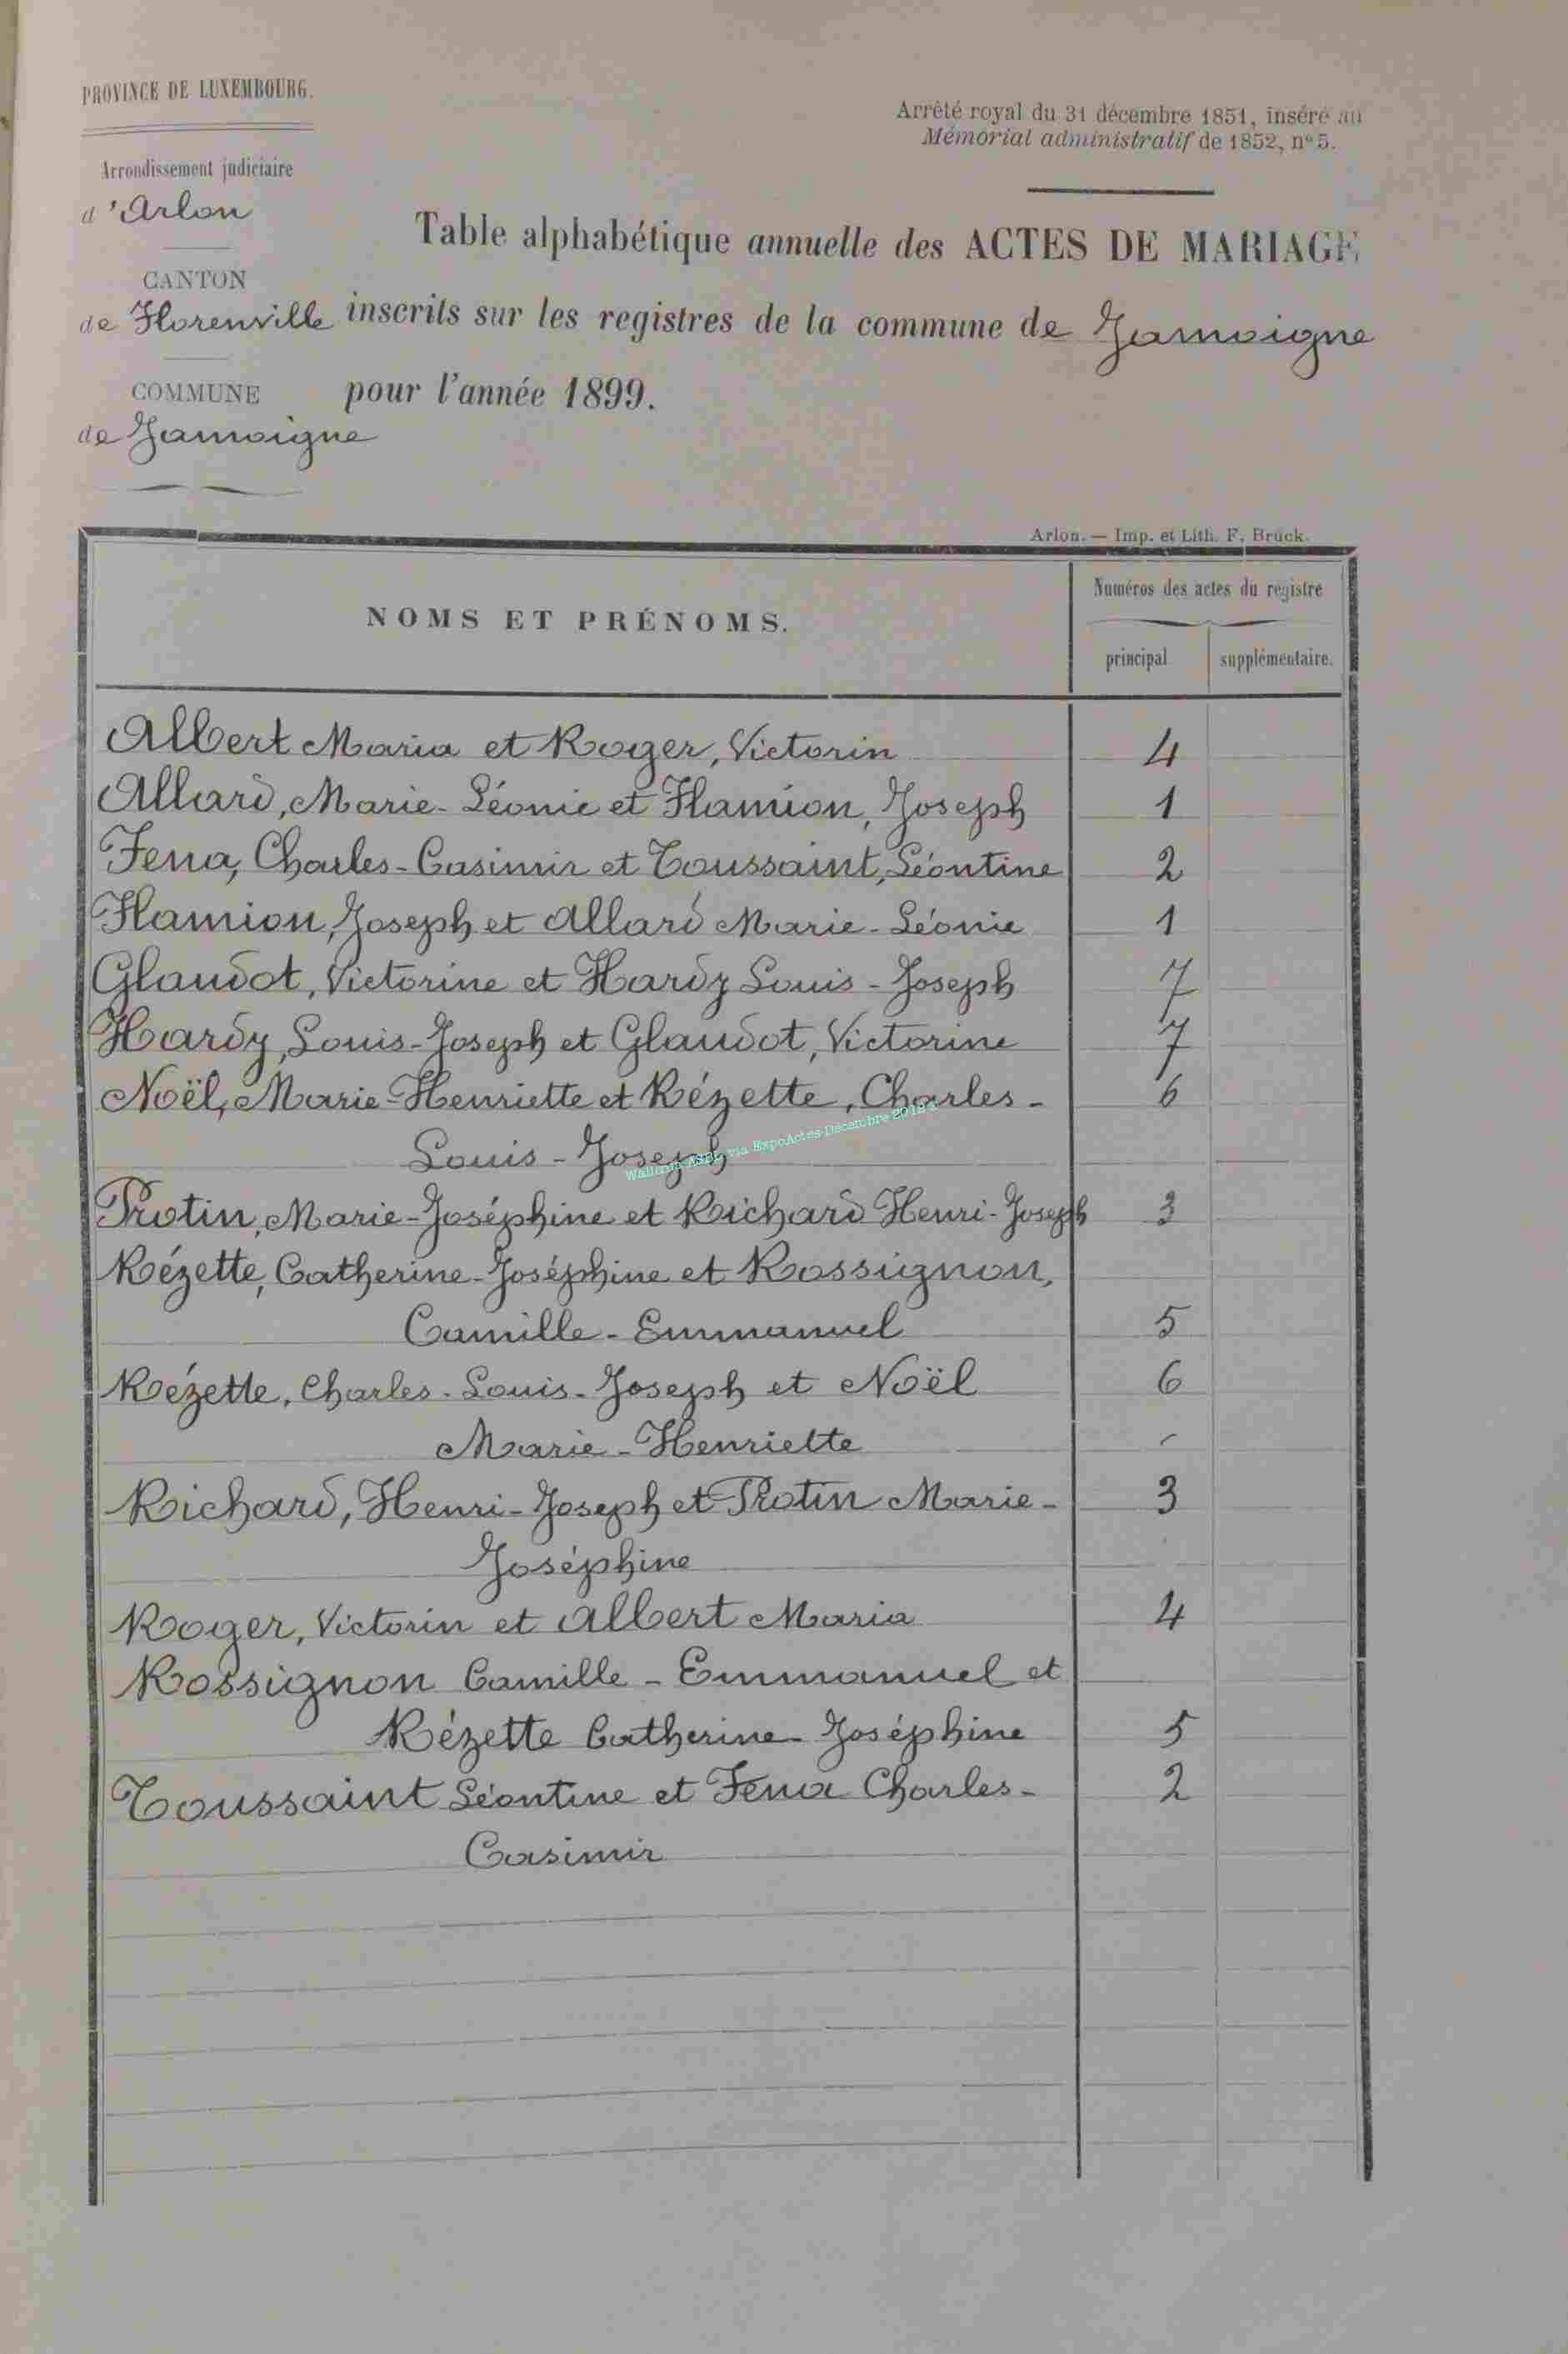 PROVINCE DE LUXEMBOURG.
Arrêté royal du 31 décembre 1851, inséré au
Mémorial administratif de 1852, n° 5.
Arrondissement judiciaire
d'Arlon
Table alphabétique annuelle des ACTES DE MARIAGE
CANTON
de Florenville
inscrits sur les registres de la commune de Jamoigne
COMMUNE
de Jamoigne
pour l'année 1899.
Arlon. — Imp. et Lith. F. Brück.
NOMS ET PRÉNOMS.
Numéros des actes du registre
principal
supplémentaire.
Albert Maria et Roger, Victorin 4
Allard, Marie-Léonie et Flamion, Joseph 1
Fena, Charles-Casimir et Toussaint, Léontine 2
Flamion, Joseph et Allard Marie-Léonie 1
Glaudot, Victorine et Hardy Louis-Joseph 7
Hardy, Louis-Joseph et Glaudot, Victorine 7
Noël, Marie-Henriette et Rézette, Charles- 6
Louis-Joseph
Wallonia ASBL via ExpoActes-Décembre 2018
Protin, Marie-Joséphine et Richard Henri-Joseph 3
Rézette, Catherine-Joséphine et Rossignon,
Camille-Emmanuel 5
Rézette, Charles-Louis-Joseph et Noël 6
Marie-Henriette
Richard, Henri-Joseph et Protin Marie- 3
Joséphine
Roger, Victorin et Albert Maria 4
Rossignon Camille-Emmanuel et
Rézette Catherine-Joséphine 5
Toussaint Léontine et Fena Charles- 2
Casimir